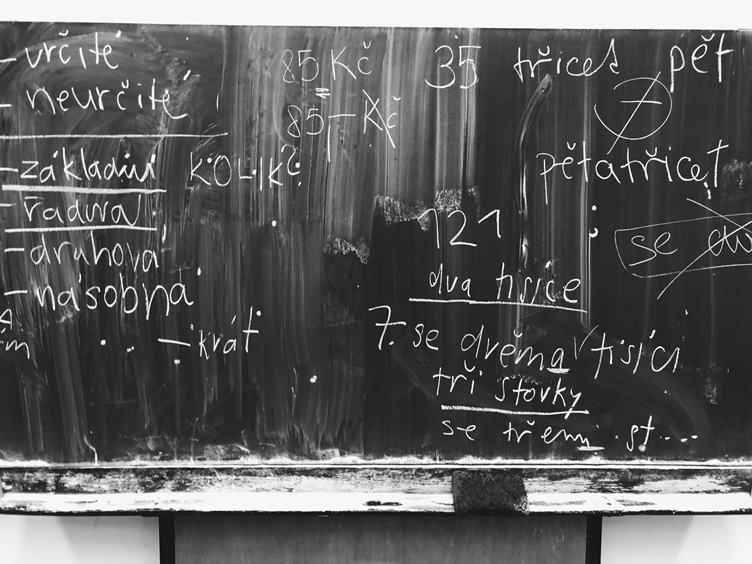 - určité
- neurčité
- základní KOLIK?
- řadová
- druhová
- násobná
- krát
85 Kč
85,- Kč
35 třicet pět
pětatřicet
121
se
dva tisíce
7. se dvěma tisíci
tři stovky
se třemi st...